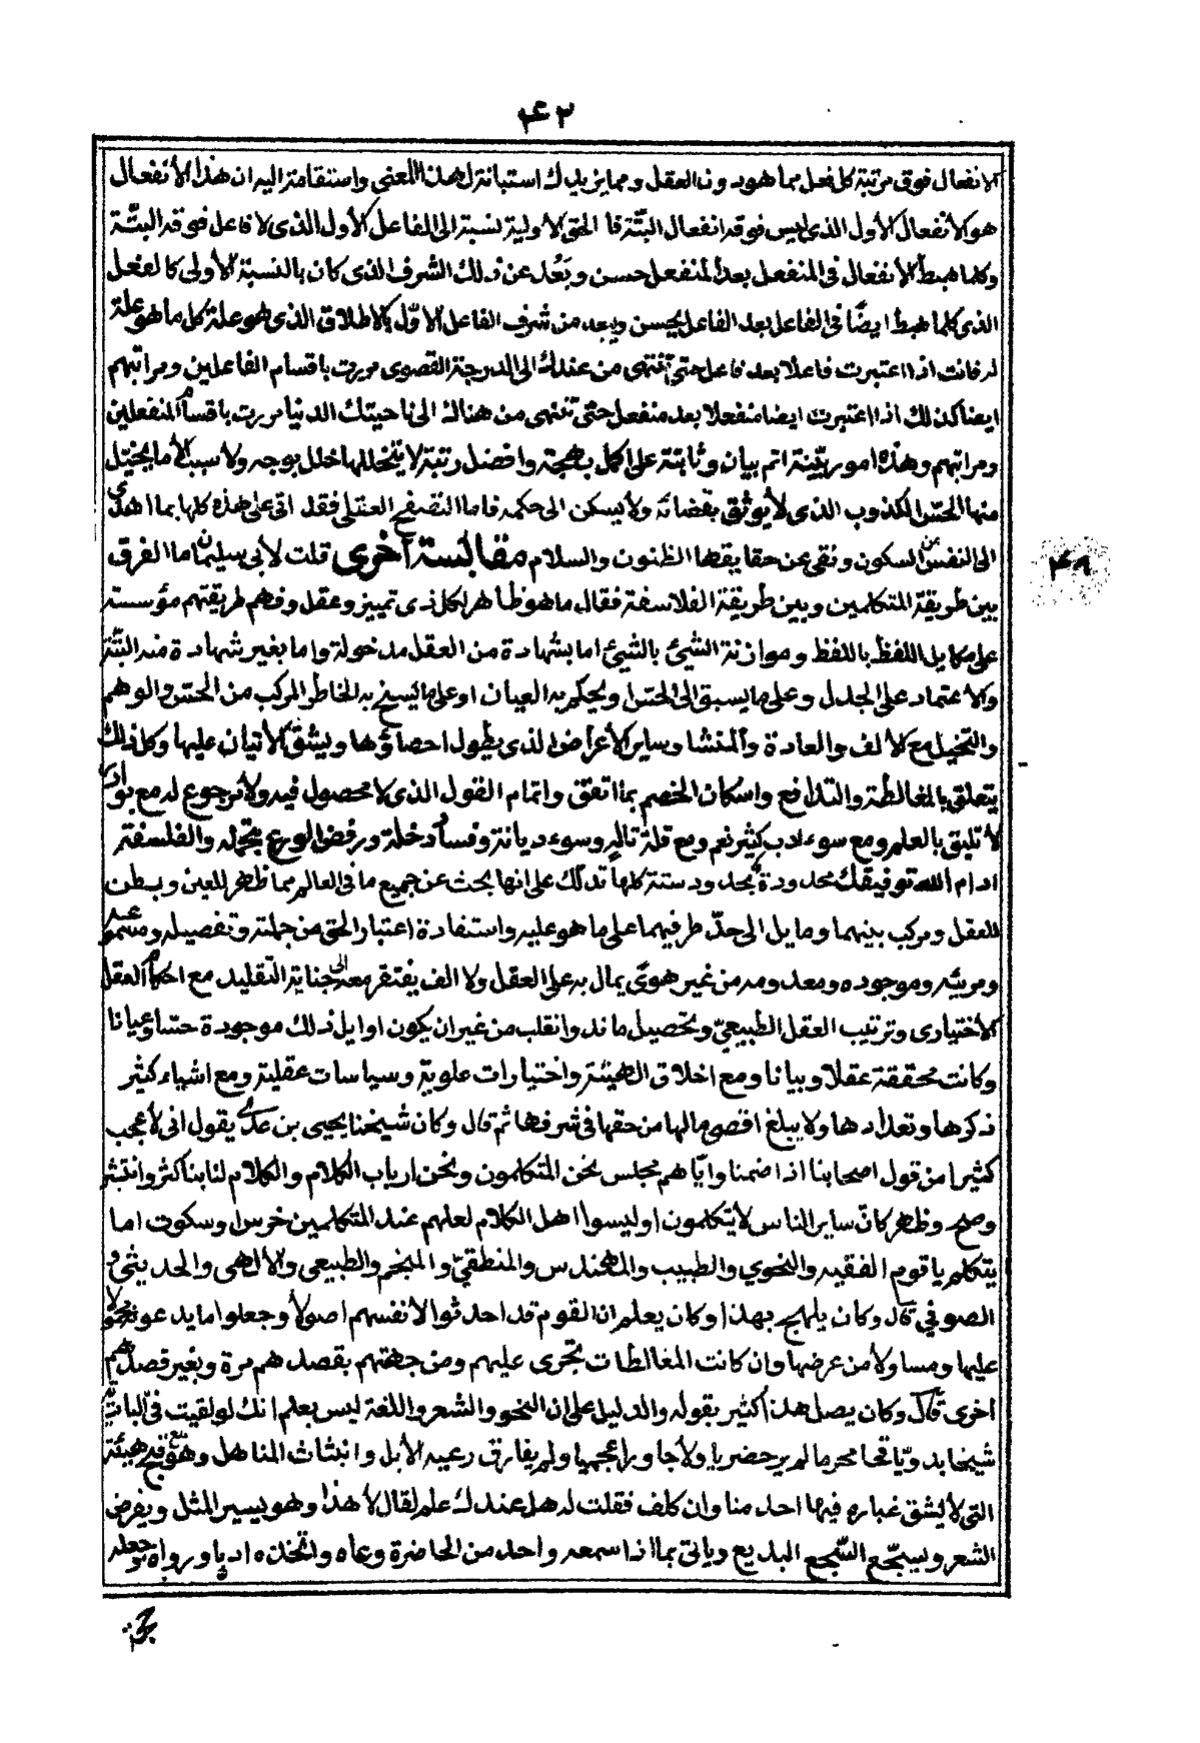 ۴۲
الانفعال فوق مرتبة كل فعل مما هو دون العقل ومما يزيدك استبانة لهذا المعنى واستقامة اليه ان هذا الأنفعال
هو الأنفعال الأول الذى ليس فوقه انفعال البتّة فا الحق الأولية نسبة الى الفاعل الأول الذى لا فاعل فوقه البتّة
وكلما هبط الأنفعال فى المنفعل بعد المنفعل حسن وبَعُد عن ذلك الشرف الذى كان بالنسبة الأولى كالفعل
الذى كلما هبط ايضًا فى الفاعل بعد الفاعل يحسن ويبعد من شرف الفاعل الاوّل بالاطلاق الذى هو علة كل ما هو علة
له فانت اذا اعتبرت فاعلا بعد فاعل حتى تنتهى من عندك الى الدرجة القصوى مررت باقسام الفاعلين ومراتبهم
ايضا كذلك اذا اعتبرت ايضا منفعلا بعد منفعل حتى تنتهى من هناك الى ناحيتك الدنيا مررت باقسام المنفعلين
ومراتبهم وهذه امور بيّنة اتم بيان وثابتة على اكمل بهجة وافضل رتبة لا يتخللها خلل بوجه ولا سبب الا ما يخيّل
منها الحسّ الكذوب الذى لا يوثق بقضائه ولا يسكن الى حكمه فاما التصفح العقلى فقد اتى على هذه كلها بما اهدى
الى النفس من السكون ونفى عن حقايقها الظنون والسلام مقابسة أخرى قلت لأبى سليمان ما الفرق
۴۸
بين طريقة المتكلمين وبين طريقة الفلاسفة فقال ما هو ظاهر لكل ذى تمييز وعقل وفهم طريقتهم مؤسسة
على مكايل اللفظ باللفظ وموازنة الشيئ بالشيئ اما بشهادة من العقل مدخولة واما بغير شهادة منه البتّة
والاعتماد على الجدل وعلى ما يسبق الى الحسّ او يحكم به العيان او على ما يسنح به الخاطر المركب من الحس والوهم
والتخيل مع الالف والعادة والمنشا وساير الأعراض الذى يطول احصاؤها ويشق الاتيان عليها وكل ذلك
يتعلق بالمغالطة والتدافع واسكان الخصم بما اتفق واتمام القول الذى لا محصول فيه ولا مرجوع له مع بوادر
لا تليق بالعلم ومع سوء ادب كثير نعم ومع قلة تاله وسوء ديانة وفساد دخلة ورفض الورع بجمله والفلسفة
ادام الله توفيقك محدودة بحدود ستة كلها تدلك على انها بحث عن جميع ما فى العالم مما ظهر للعين وبطن
للعقل ومركب بينهما ومايل الى حدّ طرفيهما على ما هو عليه واستفادة اعتبار الحق من جملته وتفصيله ومسموعه
ومريئه وموجوده ومعدومه من غير هوًى يمال به على العقل ولا الف يفتقر معه الى جناية التقليد مع احكام العقل
الأختيارى وترتيب العقل الطبيعىّ وتحصيل ما ند وانقلب من غير ان يكون اوايل ذلك موجودة حسّا وعيانا
وكانت محققة عقلا وبيانا ومع اخلاق الهيئة واختيارات علوية وسياسات عقلية ومع اشياء كثير
ذكرها وتعدادها ولا يبلغ اقصى ما لها من حقها فى شرفها ثم قال وكان شيخنا يحيى بن عدى يقول انى لأعجب
كثيرا من قول اصحابنا اذا ضمنا وايّاهم مجلس نحن المتكلمون ونحن ارباب الكلام والكلام لنا بنا كثر وانتشر
وصح وظهر كانّ ساير الناس لا يتكلمون او ليسوا اهل الكلام لعلهم عند المتكلمين خرس او سكوت اما
يتكلم يا قوم الفقيه والنحوي والطبيب والمهندس والمنطقيّ والمنجم والطبيعى والالهى والحديثى و
الصوفي قال وكان يلهج بهذا وكان يعلم ان القوم قد احدثوا لأنفسهم اصولًا وجعلوا ما يدعونه محمولا
عليها ومساولا من عرضها وان كانت المغالطات تجرى عليهم ومن جهتهم بقصدهم مرة وبغير قصدهم
اخرى قال وكان يصل هذا كثير بقوله والدليل على ان النحو والشعر واللغة ليس بعلم انك لو لقيت فى البادية
شيخا بدويّا قحا محرما لم ير حضريا ولا جاور اعجميا ولم يفارق رعيه الأبل وانبثاث المناهل وهو مع قبح هيئة
التى لا يشق غباره فيها احد منا وان كلف فقلت له هل عندك علم لقال لا هذا وهو يسير المثل ويفرض
الشعر ويسجّع السّجع البديع وياتى بما اذا سمعه واحد من الحاضرة وعاه واتخذه ادبا ورواه وجعله